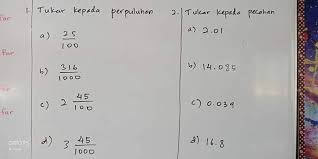 1. Tukar kepada perpuluhan
a) 25/100
b) 316/1000
c) 2 45/100
d) 3 45/1000
2. Tukar kepada pecahan
a) 2.01
b) 14.085
c) 0.039
d) 16.8